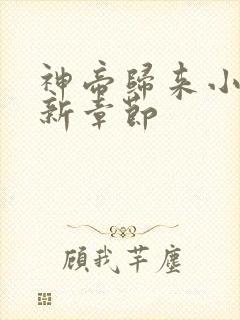 神帝歸来小
新章節
顧我芊塵